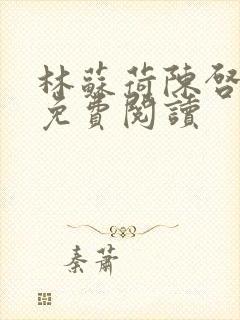 林蘇荷陳啓
免費閱讀
秦蕭